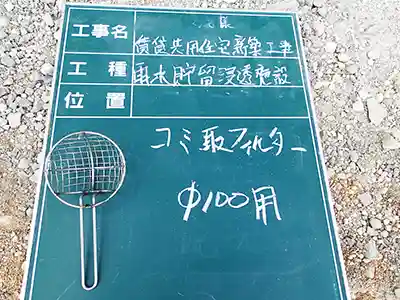 工事名
賃貸共用住宅新築工事
工種 雨水貯留浸透施設
位置
ゴミ取フィルター
φ100用